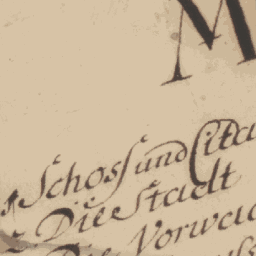 M
1 Schoss und Cita
2 Die Stadt
Die Vorwer